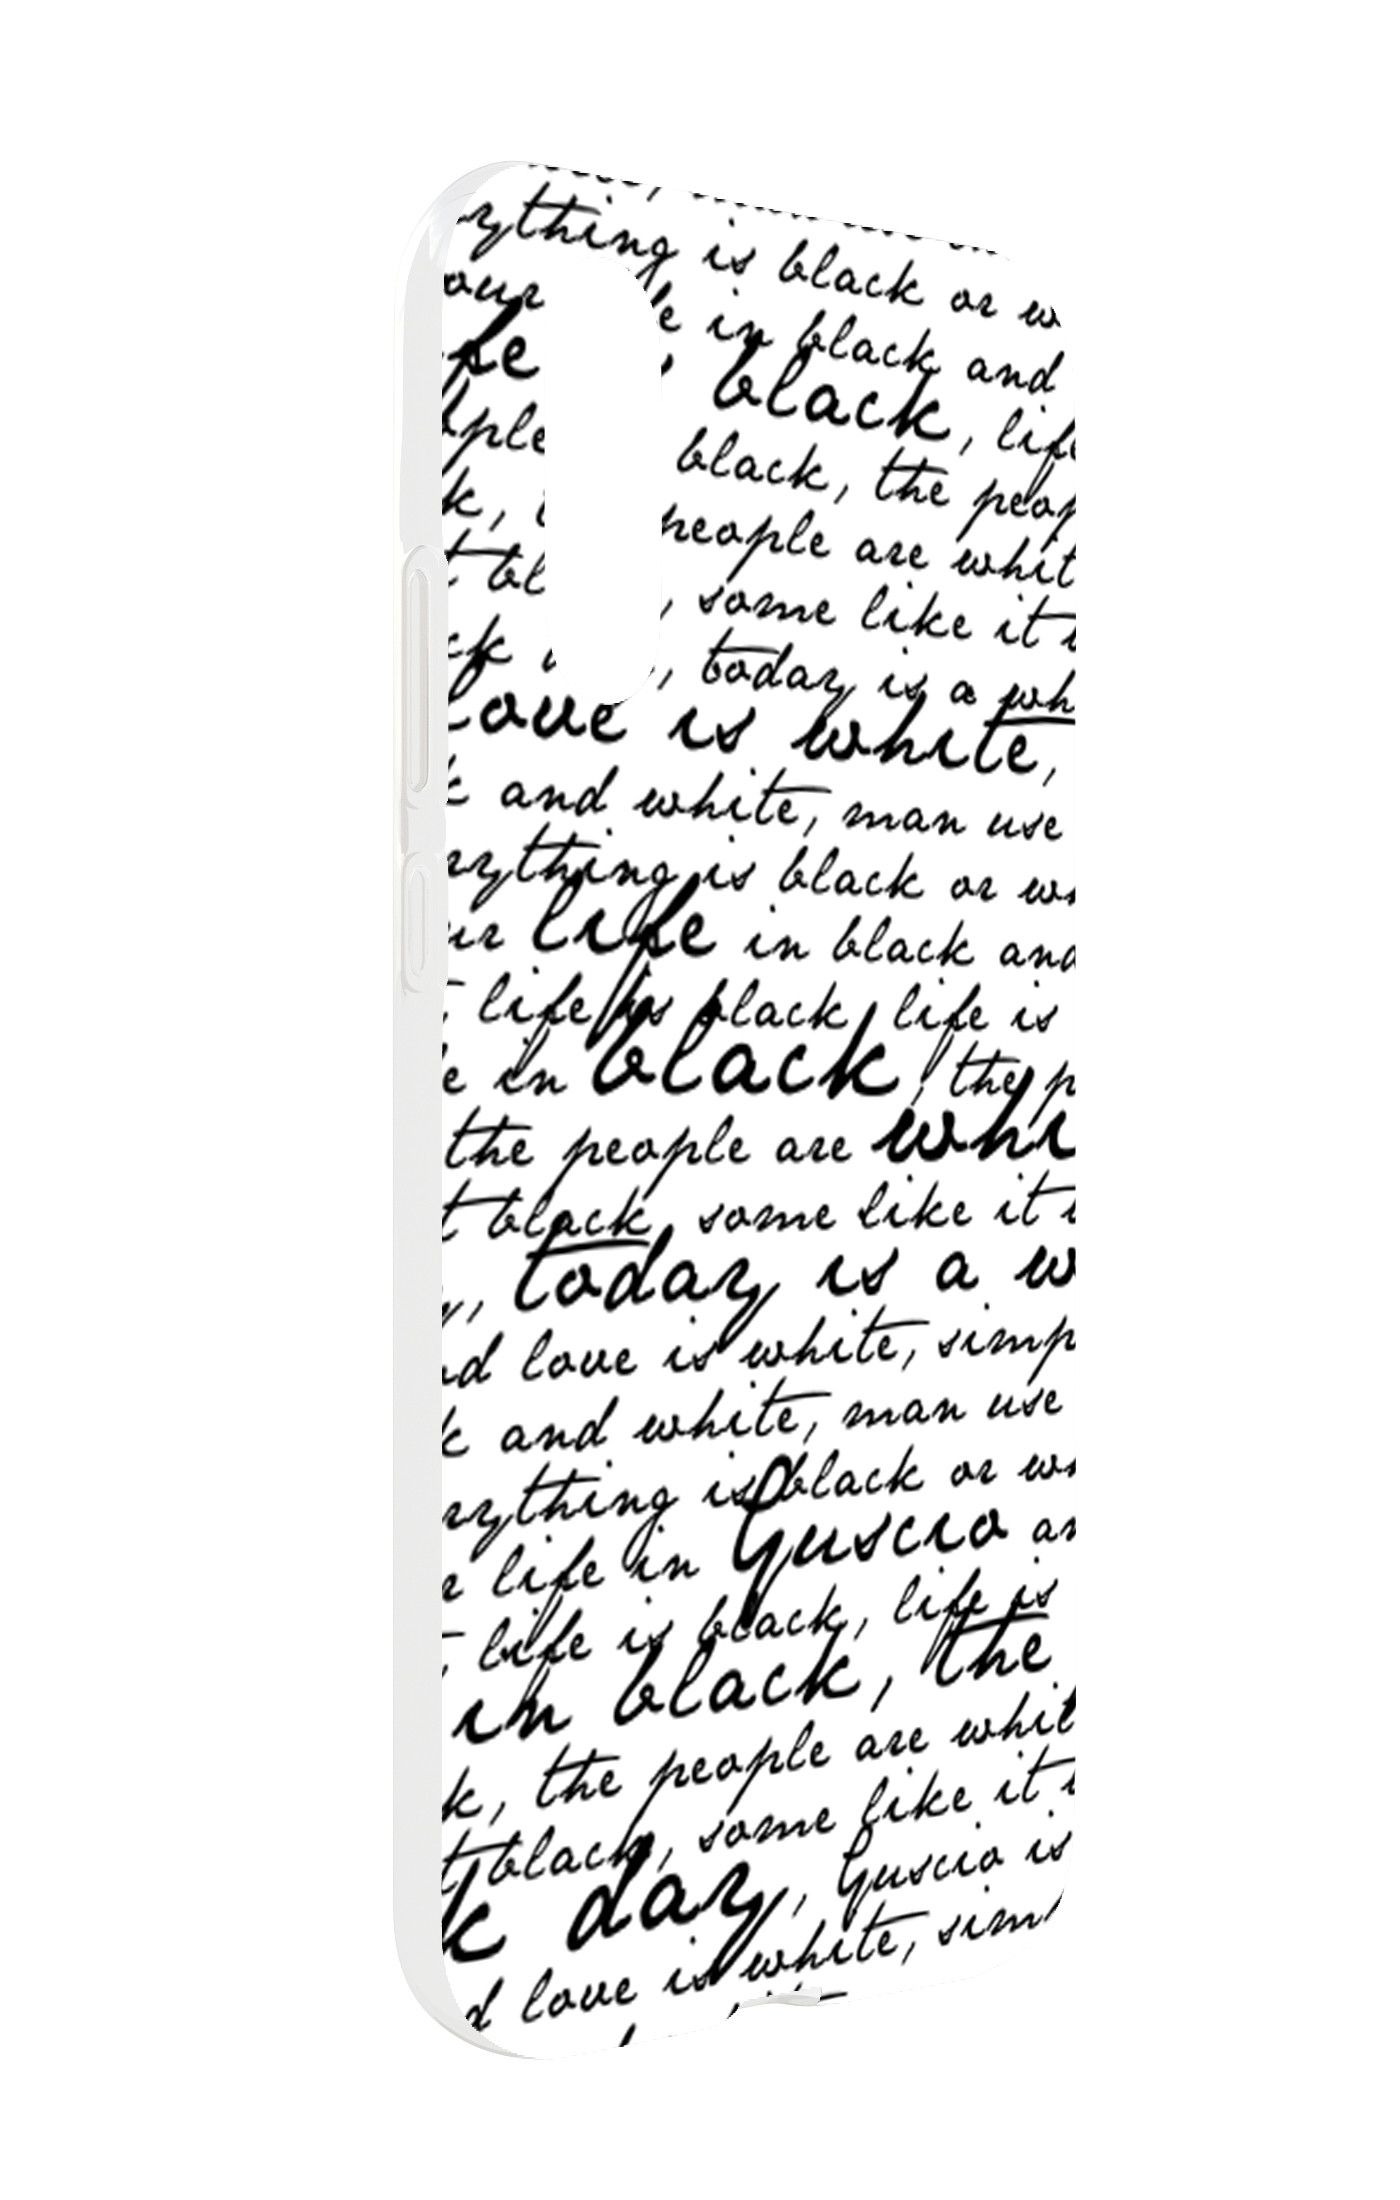 rything is black or w
our le in black and
fe , black, life
ople black, the peop
k, people are whit
t bl , some like it i
ck , today is a wh
love is white,
k and white, man use
rything is black or wh
ur life in black and
t life is black, life is
e in black, the p
the people are whi
t black, some like it i
y, today is a w
nd love is white, simp
k and white, man use
rything is black or wh
r life in Guscio an
t life is black, life is
in black, the
k, the people are whit
t black, some like it i
k day, Guscio is
d love is white, sim